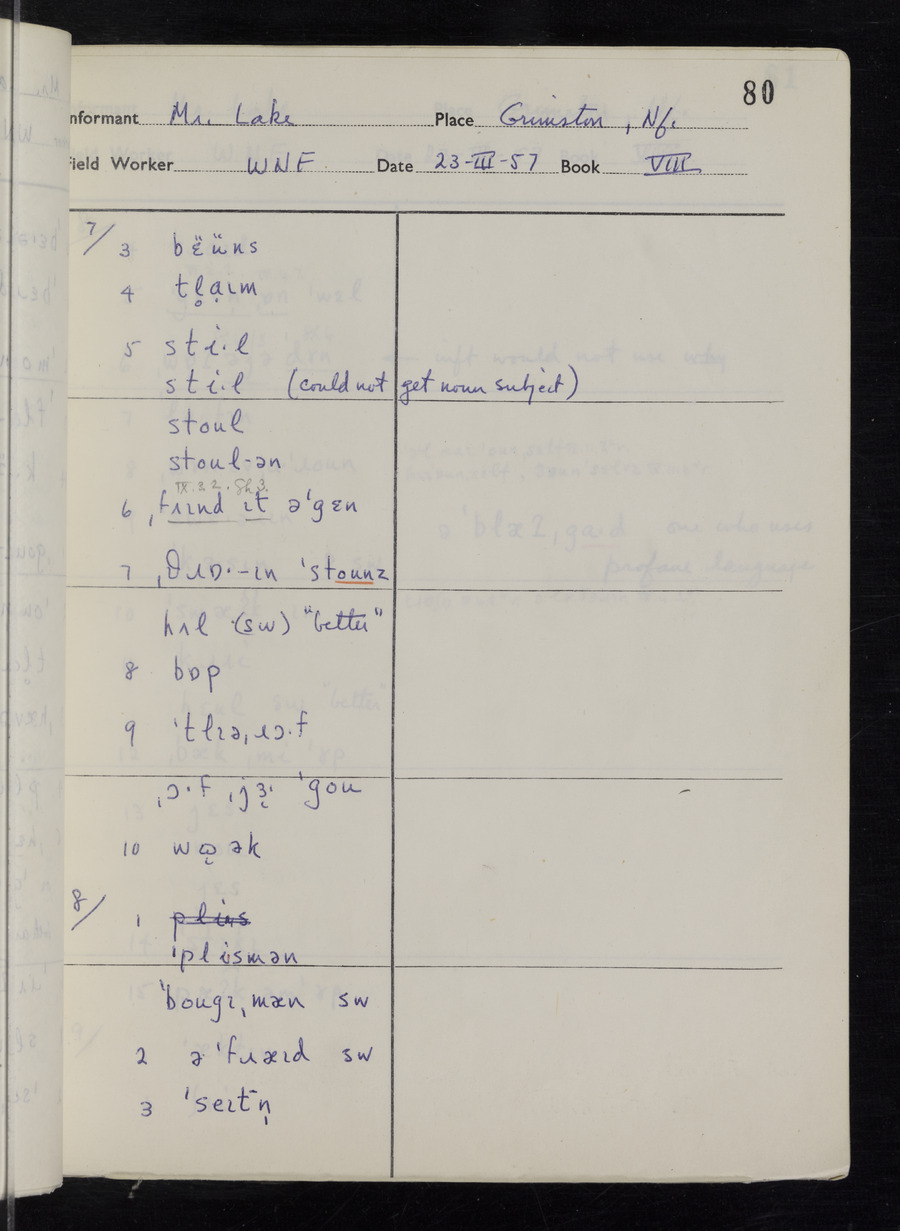 80
nformant Mr. Lake Place Grimston, Nf.
ield Worker WNF Date 23-III-57 Book VIII
7/ 3 bɛ̈üns
4 tl̥ạɪm
5 sti·l
sti·l (could not get noun subject)
stoul
stoul-ən
IX.2.2. Sh 3.
6 ˌfɹɪnd ɪt ə'gɛn
7 ˌθɹɒ·-ɪn 'stounz
hɪl (sw) "better"
8 bɒp
9 'tlɪəˌɹɔ·f
ˌɔ·f ˌjɜ̣· 'gou
10 wɒ̜ək
8/ 1 plis
'plismən
'bougɪˌmæn sw
2 ə'fɹæɪd sw
3 'seɪtn̩